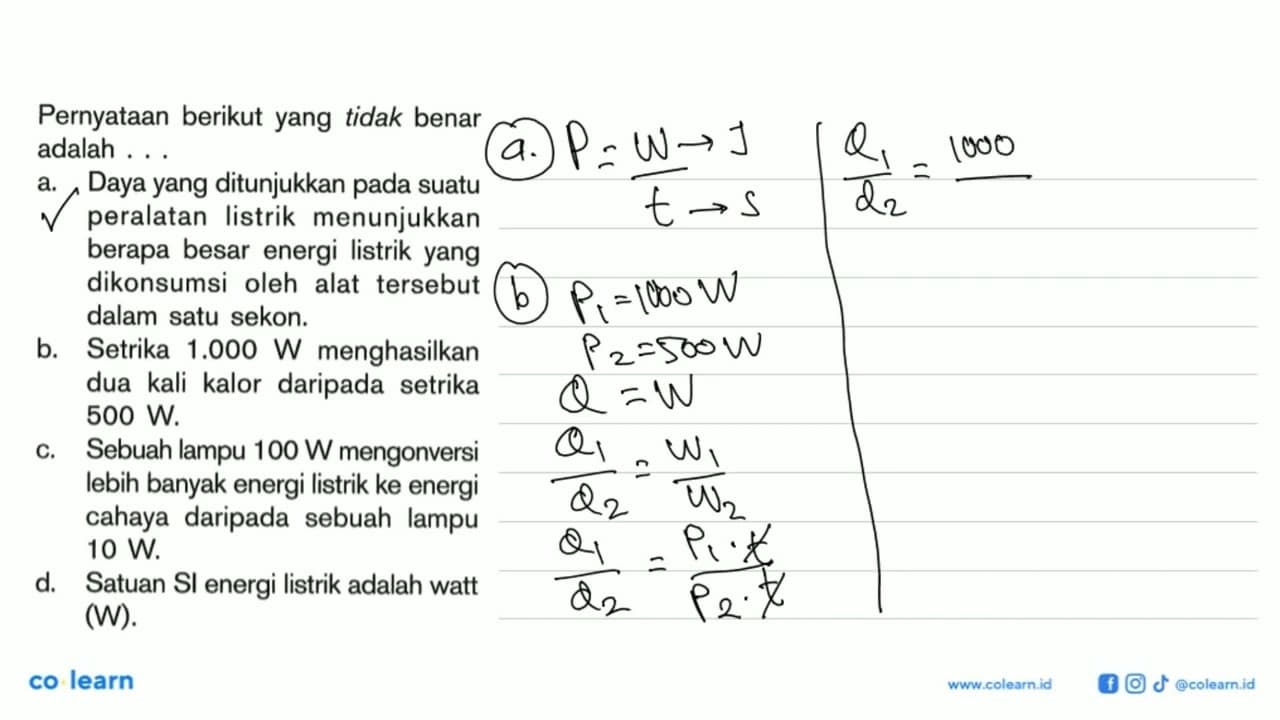 Pernyataan berikut yang tidak benar
adalah . . .
a. Daya yang ditunjukkan pada suatu
✓ peralatan listrik menunjukkan
berapa besar energi listrik yang
dikonsumsi oleh alat tersebut
dalam satu sekon.
b. Setrika 1.000 W menghasilkan
dua kali kalor daripada setrika
500 W.
c. Sebuah lampu 100 W mengonversi
lebih banyak energi listrik ke energi
cahaya daripada sebuah lampu
10 W.
d. Satuan SI energi listrik adalah watt
(W).
a. P = W → J
t → s
b P1 = 1000 W
P2 = 500 W
Q = W
Q1 = W1
Q2 W2
Q1 = P1 . t
Q2 P2 . t
Q1 = 1000
Q2
co learn
www.colearn.id
@colearn.id